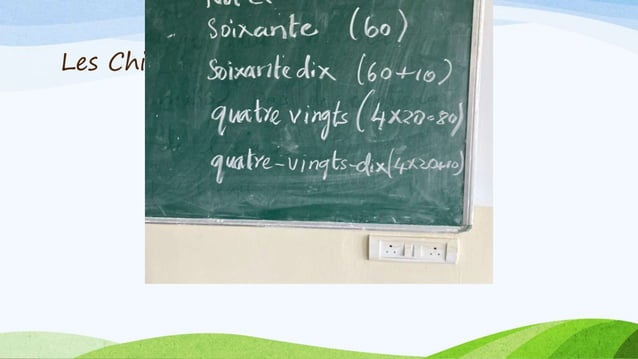 Les Chi
Soixante (60)
Soixante dix (60+10)
quatre vingts (4x20=80)
quatre-vingts-dix (4x20+10)